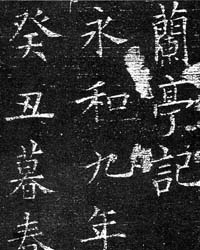 蘭亭記
永和九年
癸丑暮春